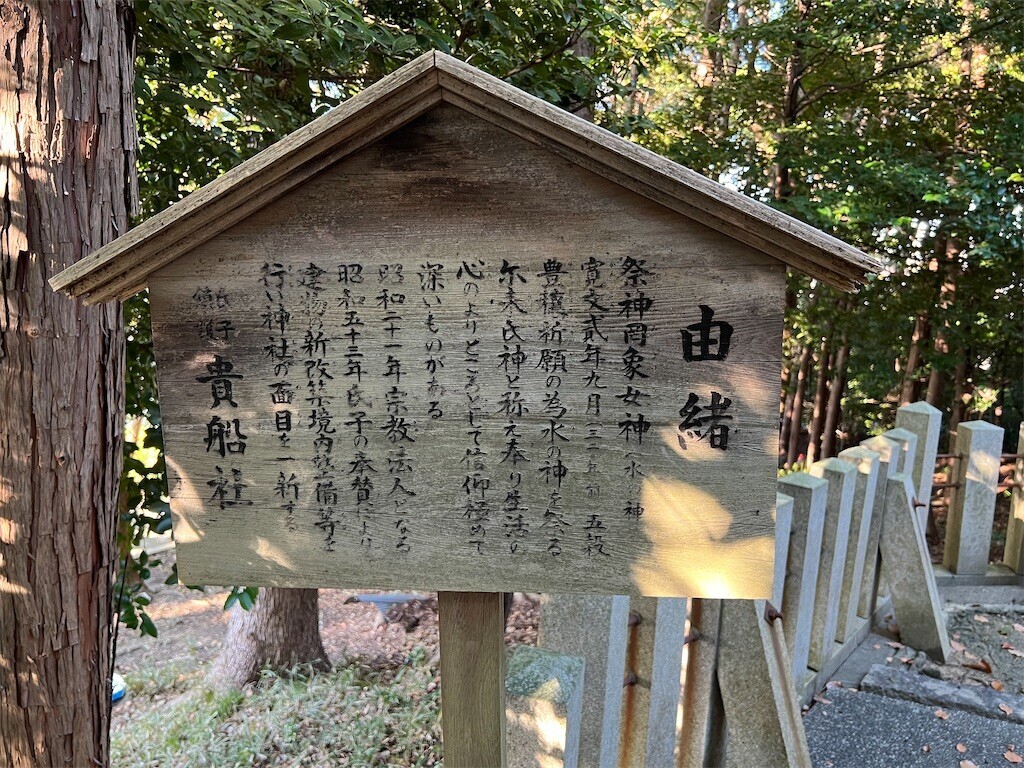 由緒
祭神罔象女神（水神
寛文貮年九月 年前 五穀
豊穣祈願の為水の神を祭る
尓来氏神と称え奉り生活の
心のよりどころとして信仰極めて
深いものがある
昭和二十一年宗教法人となる
昭和五十三年氏子の奉賛により
建物新改築境内整備等を
行い神社の面目を一新する
氏子
貴船社